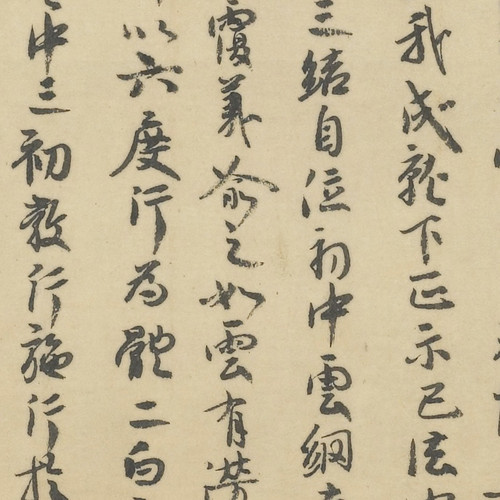 我成就下正示己法
三結自位初中雲綱
覆義俞之如雲有
以六度行為體二白
中三初教行施行於